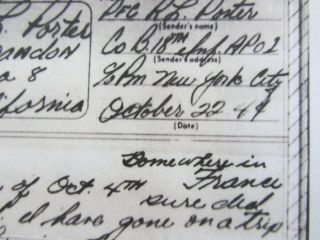 Pvt R L Porter
(Sender's name)
Porter
Co D. 18th Inf. APO 1
(Sender's address)
andon
a 8
c/o Pm New York City
ifornia
October 22 44
(Date)
Somewhere in
France
of Oct. 4TH
sure did
I have gone on a trip